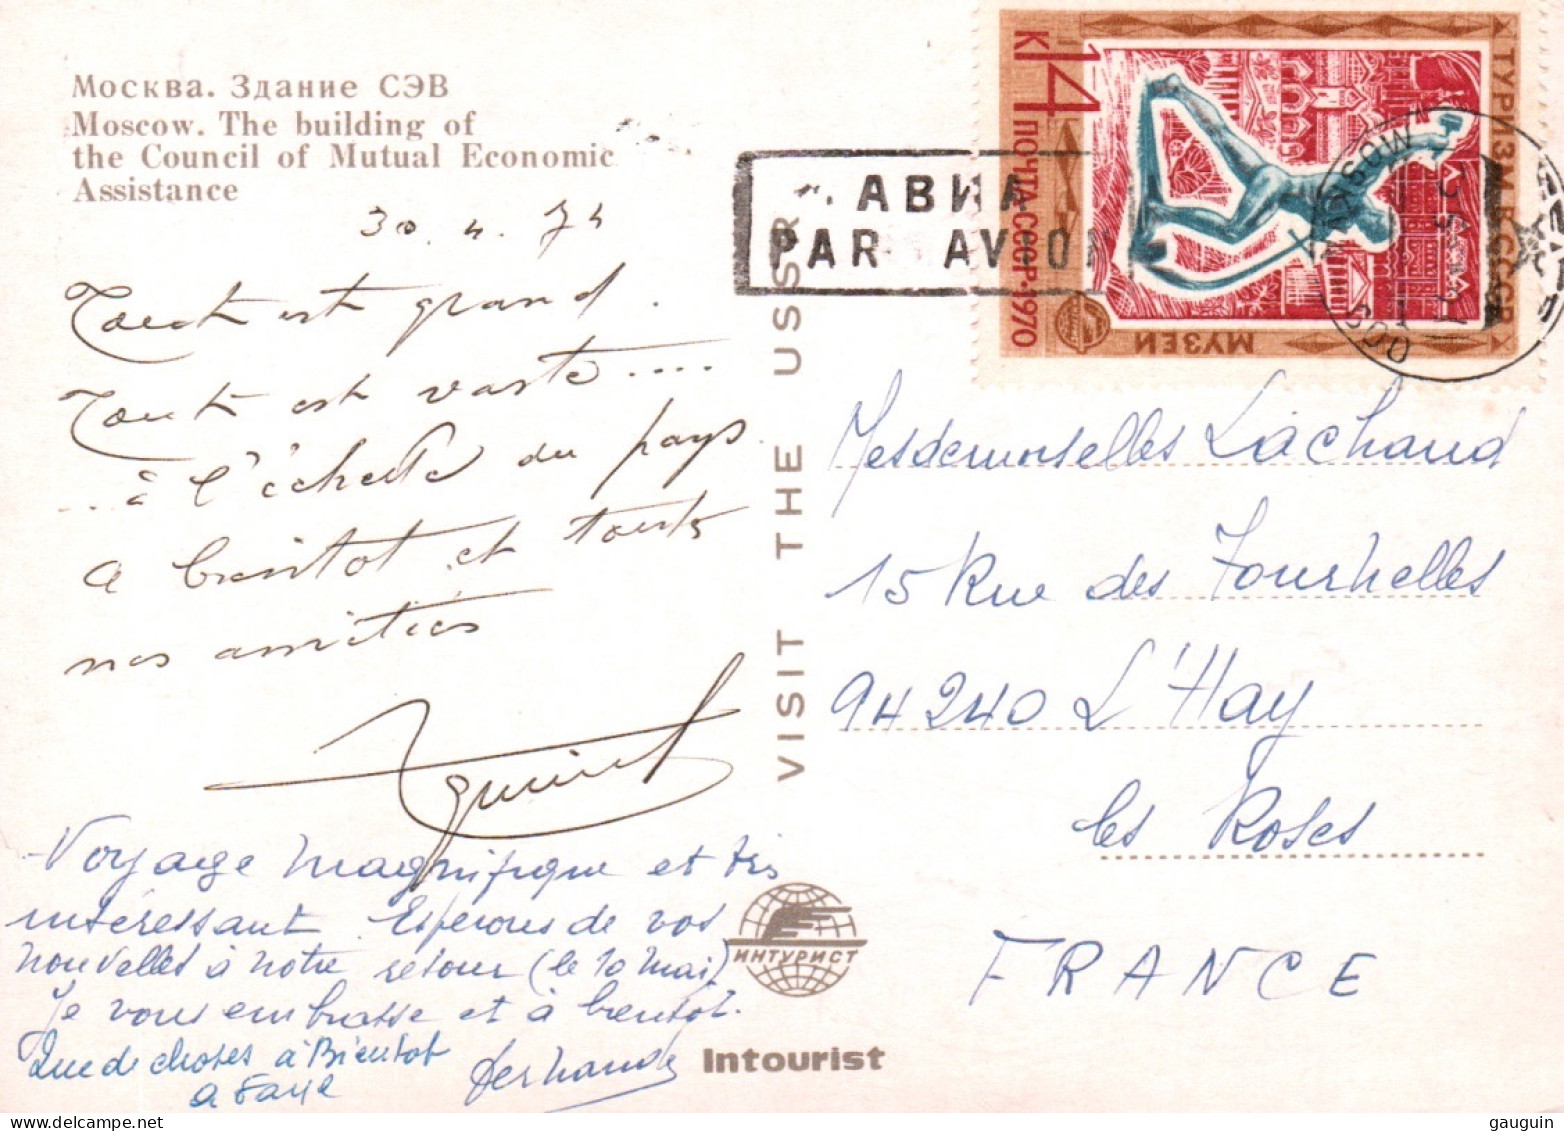 Москва. Здание СЭВ
Moscow. The building of
the Council of Mutual Economic
Assistance
30. 4. 74
Tout est grand.
Tout est vaste....
...à l'échelle du pays
A bientot et toutes
nos amitiés
Voyage magnifique et très
intéressant. Espérons de vos
nouvelles à notre retour (le 10 mai)
Je vous embrasse et à bientot.
Fernande
Que de choses à Bientot
a Faye
VISIT THE USSR
ИНТУРИСТ
Intourist
АВИА
PAR AVION
14 К
ПОЧТА СССР·1970
ТУРИЗМ В СССР
МУЗЕИ
MOSKVA
Mesdemoiselles Lachaud
15 Rue des Tournelles
94240 L'Hay
les Roses
FRANCE
gauguin